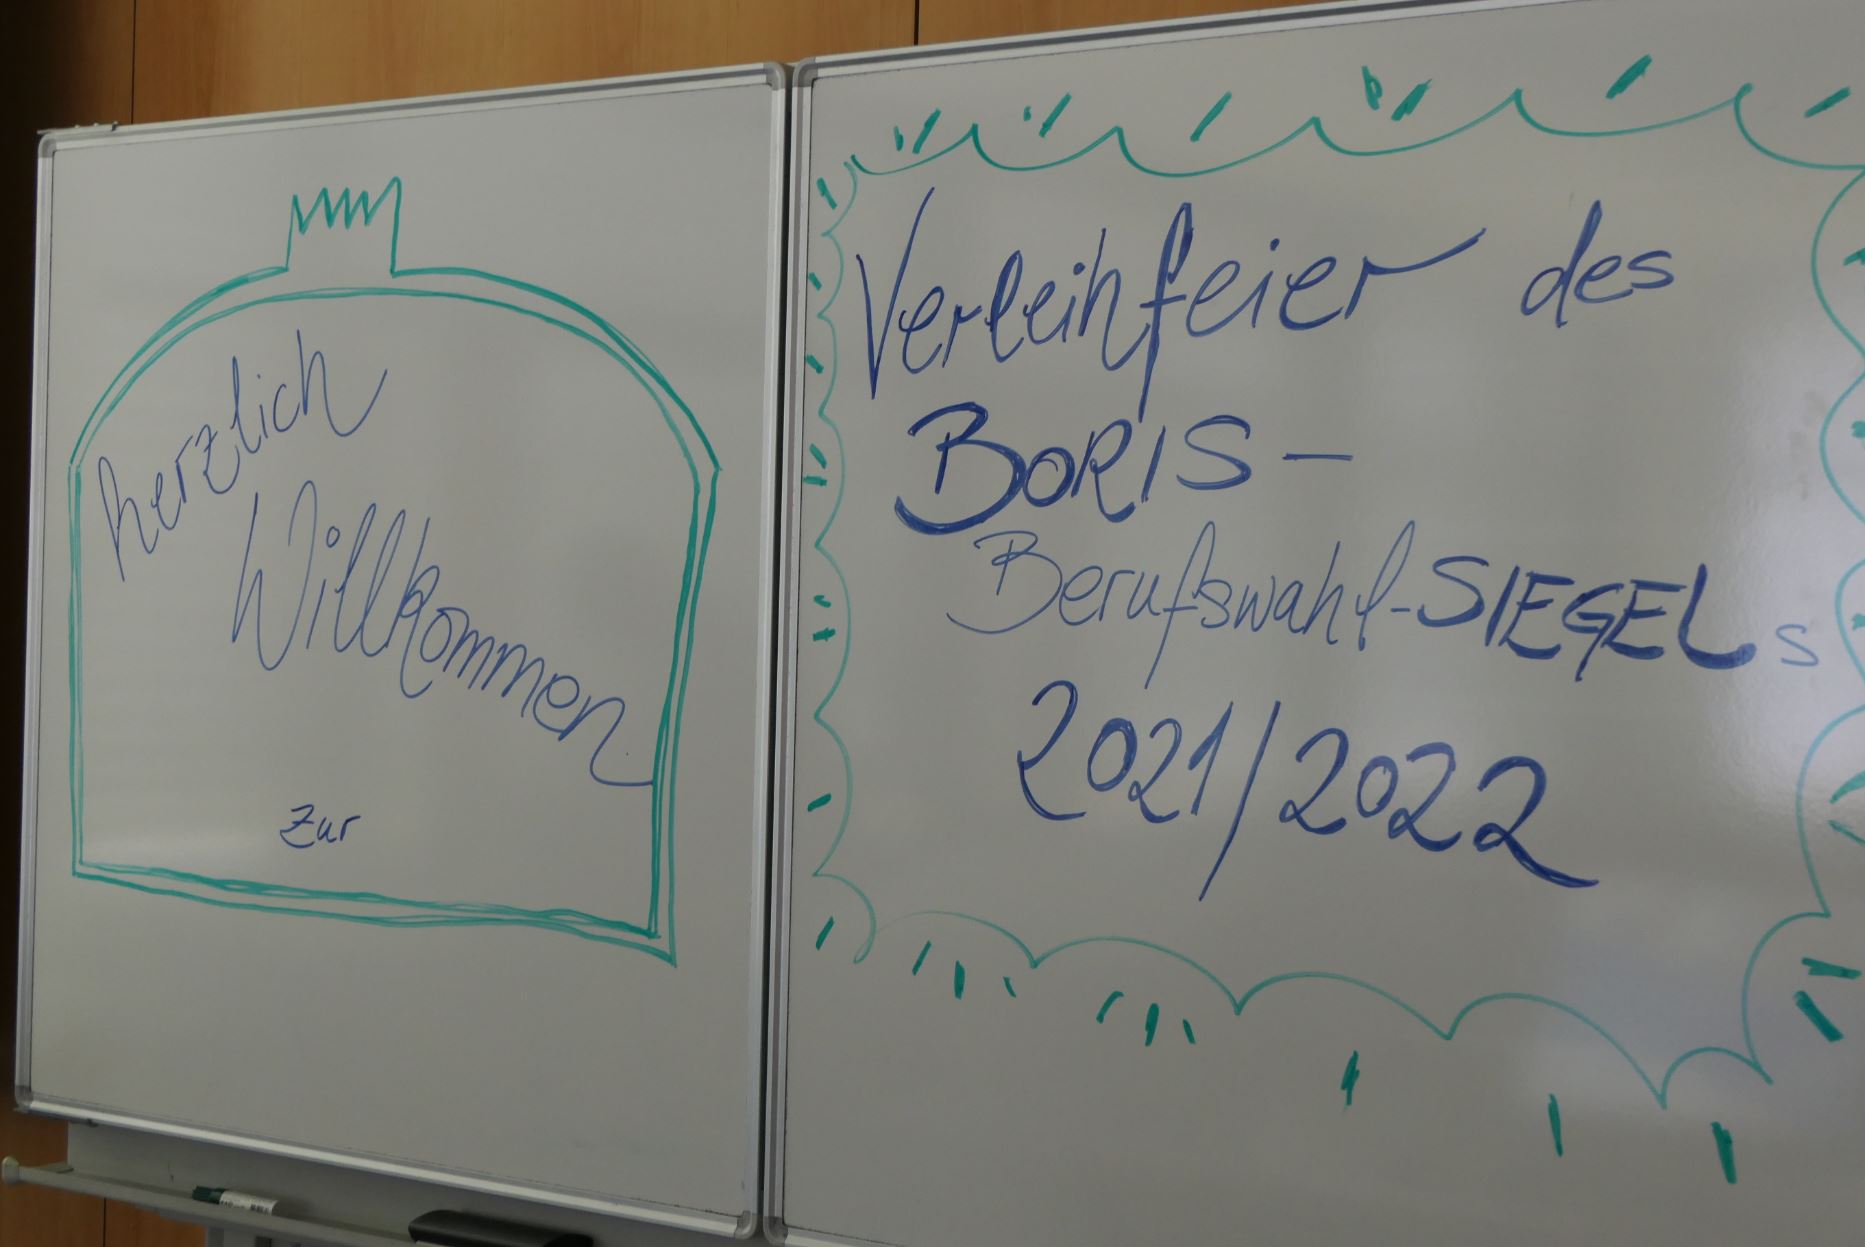 herzlich
Willkommen
zur
Verleihfeier des
BORIS -
Berufswahl-SIEGELs
2021/2022